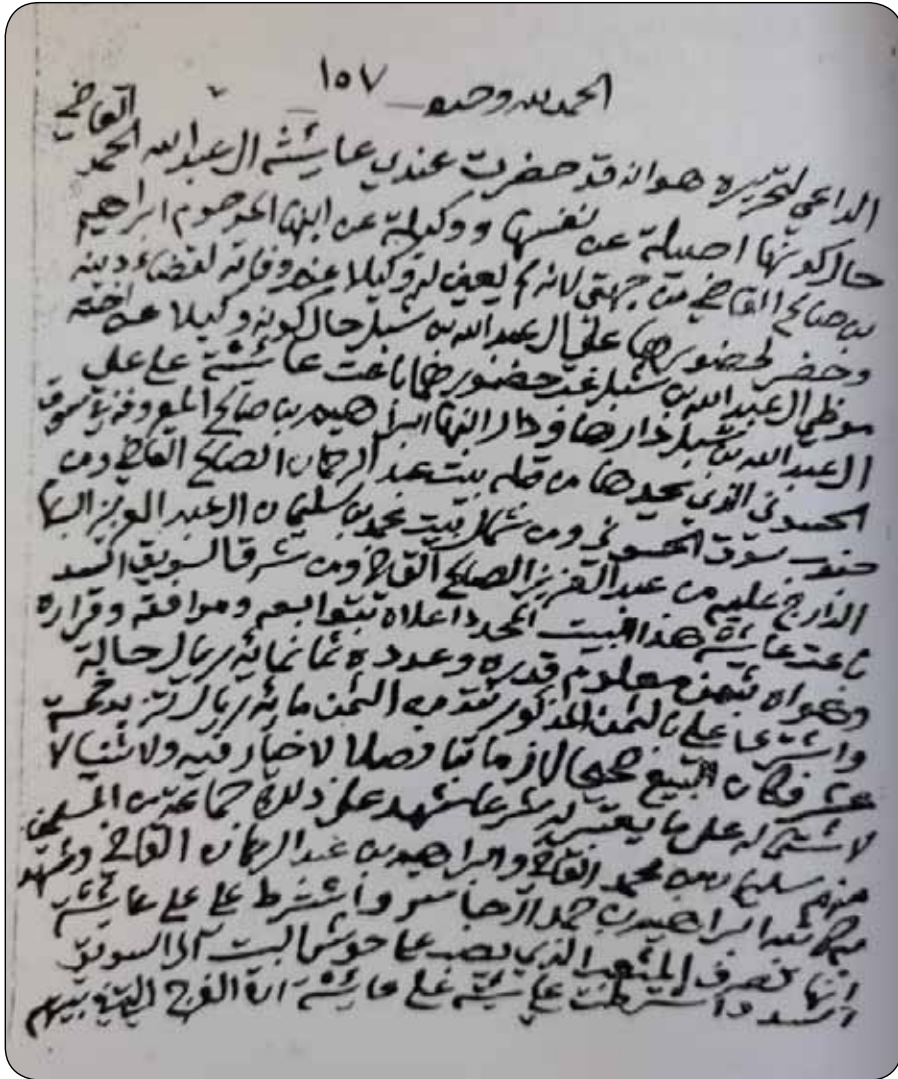 الحمد لله وحده ١٥٧
الداعي لتحريره هو انه قد حضرت عندي عايشه ال عبد الله الحمد القاضي
حال كونها اصيلة عن نفسها ووكيلة عن ابنها المرحوم ابراهيم
بن صالح القاضي من جهتي لانه لم يعين له وكيلا عند وفاته لقضاء دينه
وحضر لحضورها علي ال عبد الله بن شبل حال كونه وكيلا عن اخته
موضي ال عبد الله بن شبل فبعد حضورهما باعت عائشة على علي
ال عبد الله بن شبل دارها ودار ابنها ابراهيم بن صالح المعروفة سوق
الحسوني الذي يحدها من قبله بيت عبد الرحمان الصالح القاضي ومن
جنوب سوق الحسوني ومن شمال بيت محمد بن سليمان ال عبد العزيز البسام
الدارج عليه من عبد العزيز الصالح القاضي ومن شرق السويق السد
باعت عائشة هذا البيت المحدد اعلاه بتوابعه ومرافقه وقراره
وهواه بثمن معلوم قدره وعدده ثمانمائة ريال حالة
واشترى علي بالثمن المذكور نقد من الثمن مائة ريال تزيد خمسة
عشر فكان البيع صحيحا لازما باتا فصلا لا خيار فيه ولا ثنيا لا
لاشتماله على ما يعتبر له شرعا شهد على ذلك جماعة من المسلمين
منهم سليمان بن محمد القاضي وابراهيم بن عبد الرحمان القاضي وشهد
به كاتبه ابراهيم بن حمد الجاسر واشترط علي على عايشة
انها تصرف المثعب الذي يصب على حوش البيت الى السويق
السد واشترطت عايشة على علي ان الفرج التي بينهم